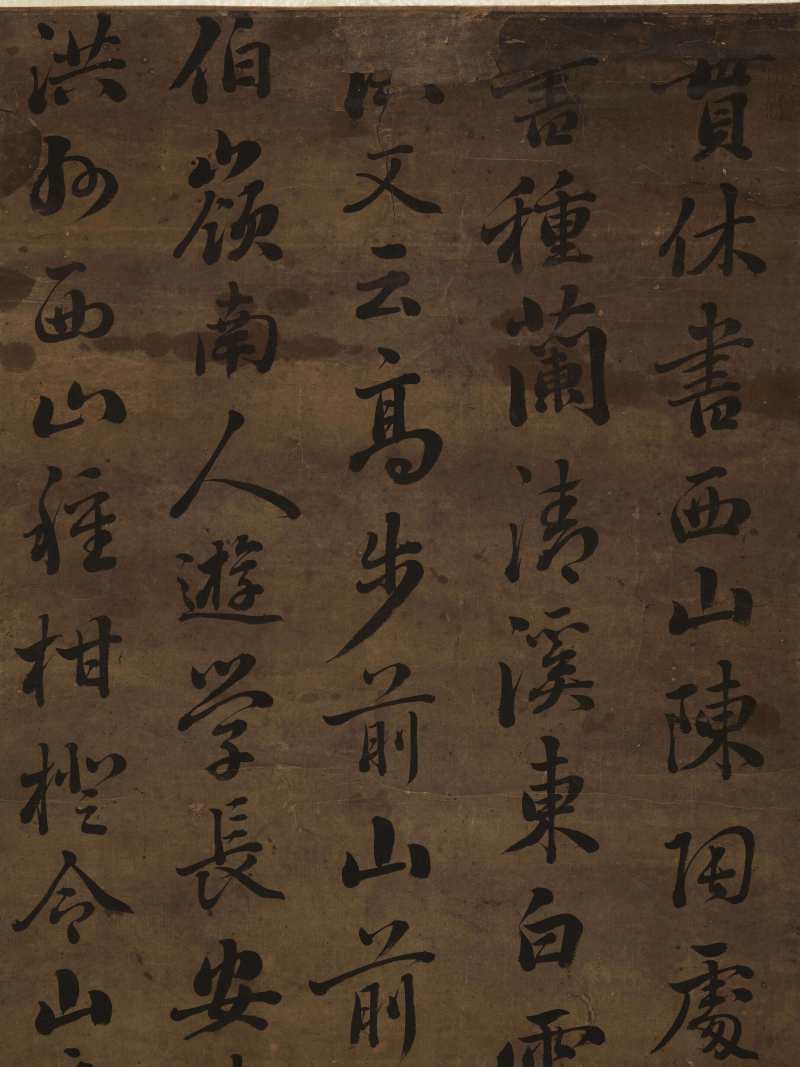 貫休書西山陳陶處
書種蘭清溪東白雲
文云高步前山前
伯嶺南人遊学長安
洪州西山種柑橙令山